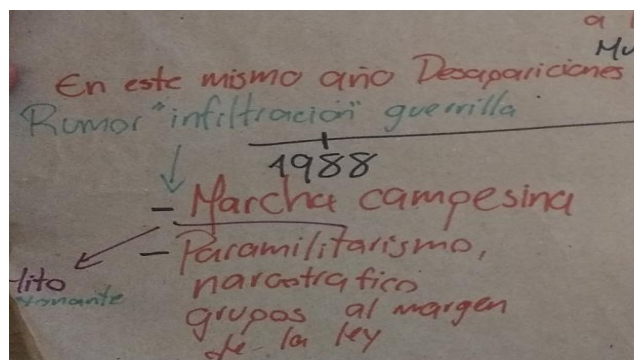 En este mismo año Desapariciones
Rumor "infiltración" guerrilla
1988
- Marcha campesina
- Paramilitarismo,
narcotrafico
grupos al margen
de la ley